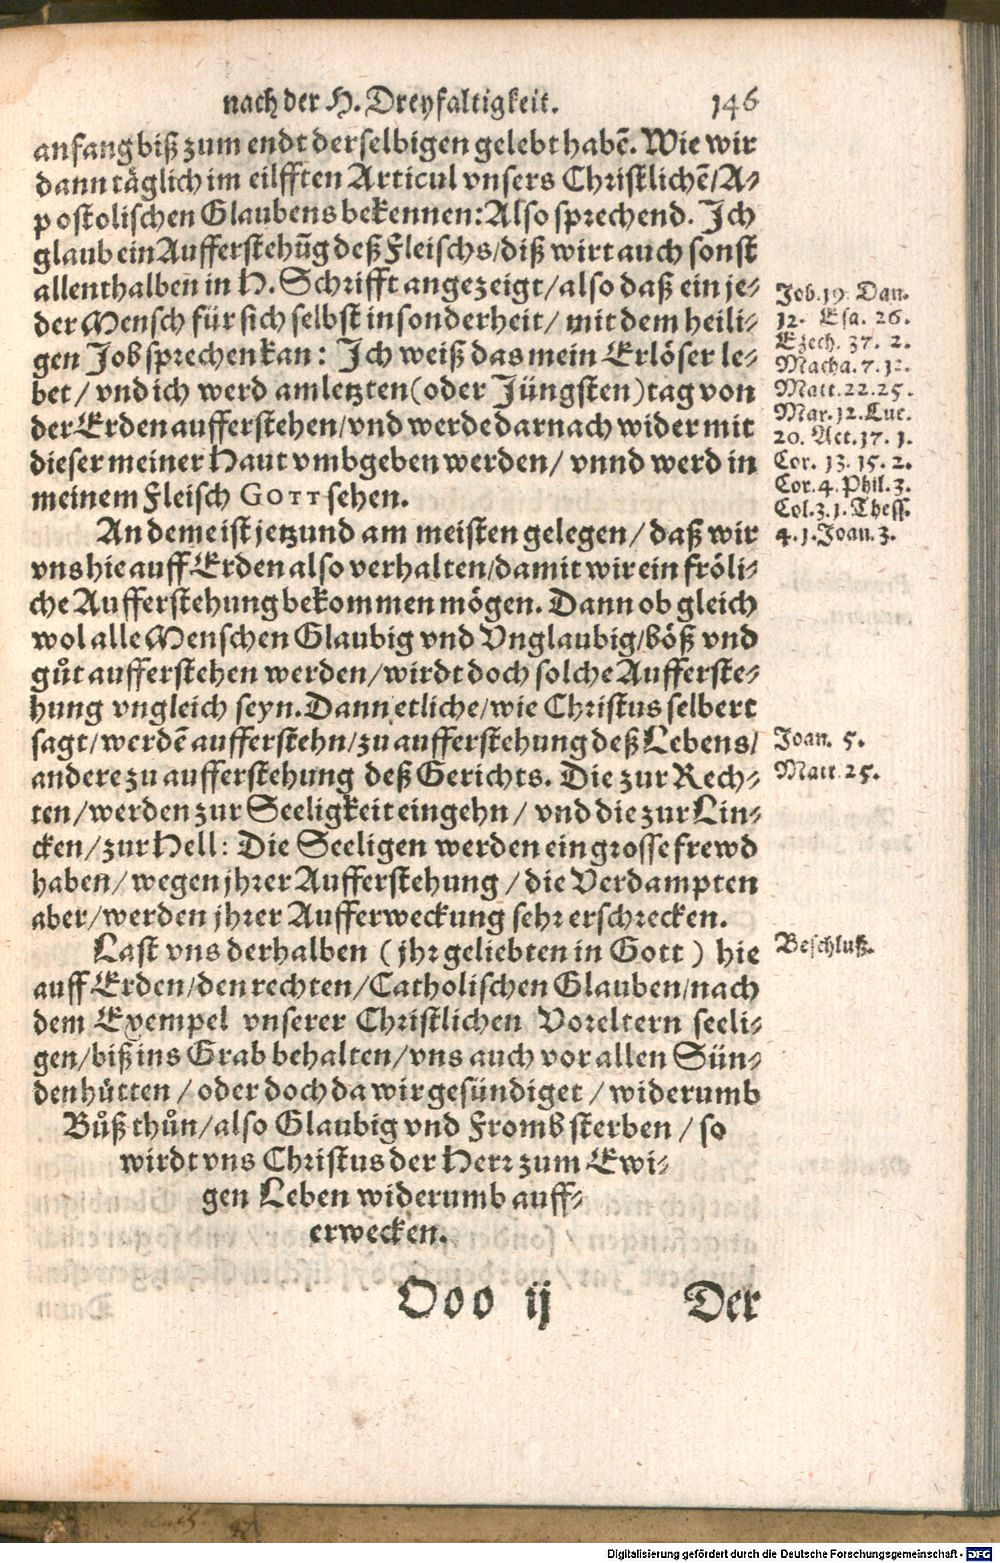 nach der H. Dreyfaltigkeit. 146
anfang biß zum endt derselbigen gelebt habẽ. Wie wir
dann täglich im eilfften Articul vnsers Christlichẽ/ A-
postolischen Glaubens bekennen: Also sprechend. Ich
glaub ein Aufferstehũg deß Fleischs/ diß wirt auch sonst
allenthalben in H. Schrifft angezeigt/ also daß ein je-
der Mensch für sich selbst insonderheit/ mit dem heili-
gen Job sprechen kan: Ich weiß das mein Erlöser le-
bet/ vnd ich werd am letzten (oder Jüngsten) tag von
der Erden aufferstehen/ vnd werde darnach wider mit
dieser meiner Haut vmbgeben werden/ vnnd werd in
meinem Fleisch GOTT sehen.
Job. 19. Dan.
12. Esa. 26.
Ezech. 37. 2.
Macha. 7. 12.
Matt. 22. 25.
Mar. 12. Luc.
20. Act. 17. 1.
Cor. 13. 15. 2.
Cor. 4. Phil. 3.
Col. 3. 1. Thess.
4. 1. Joan. 3.
An deme ist jetzund am meisten gelegen/ daß wir
vns hie auff Erden also verhalten/ damit wir ein fröli-
che Aufferstehung bekommen mögen. Dann ob gleich
wol alle Menschen Glaubig vnd Vnglaubig/ böß vnd
gůt aufferstehen werden/ wirdt doch solche Aufferste-
hung vngleich seyn. Dann etliche/ wie Christus selbert
sagt/ werdẽ aufferstehn/ zu aufferstehung deß Lebens/
andere zu aufferstehung deß Gerichts. Die zur Rech-
ten/ werden zur Seeligkeit eingehn/ vnd die zur Lin-
cken/ zur Hell: Die Seeligen werden ein grosse frewd
haben/ wegen jhrer Aufferstehung/ die Verdampten
aber/ werden jhrer Aufferweckung sehr erschrecken.
Joan. 5.
Matt. 25.
Last vns derhalben (jhr geliebten in Gott) hie
auff Erden/ den rechten/ Catholischen Glauben/ nach
dem Exempel vnserer Christlichen Voreltern seeli-
gen/ biß ins Grab behalten/ vns auch vor allen Sün-
den hůtten/ oder doch da wir gesündiget/ widerumb
Bůß thůn/ also Glaubig vnd Fromb sterben/ so
wirdt vns Christus der Herr zum Ewi-
gen Leben widerumb auff-
erwecken.
Beschluß.
Ooo ij Der
Digitalisierung gefördert durch die Deutsche Forschungsgemeinschaft - DFG